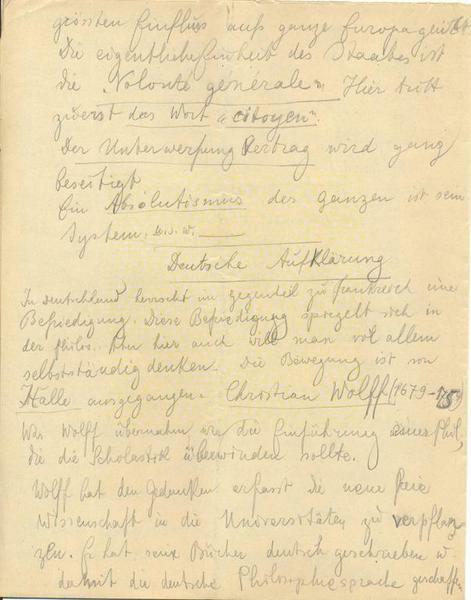 grössten Einfluss aufs ganze Europa geübt
Die eigentliche Einheit des Staates ist
die „Volonté générale". Hier tritt
zuerst das Wort „citoyen".
Der Unterwerfung Vertrag wird ganz
beseitigt
Ein Absolutismus des ganzen ist sein
System. u.s.w.
Deutsche Aufklärung
In Deutschland herrscht im gegenteil zu Frankreich eine
Befriedigung. Diese Befriedigung spiegelt sich in
der Philos. Aber hier auch will man vol allem
selbstständig denken. Die Bewegung ist von
Halle ausgegangen. Christian Wolff (1679-
Was Wolff übernahm war die Einführung einer Phil,
die die Scholastik überwinden sollte.
Wolff hat den Gedanken erfasst die neue freie
Wissenschaft in die Universitäten zu verpflan
zen. Er hat seine Bücher deutsch geschrieben u.
damit die deutsche Philosophiesprache geschaffen